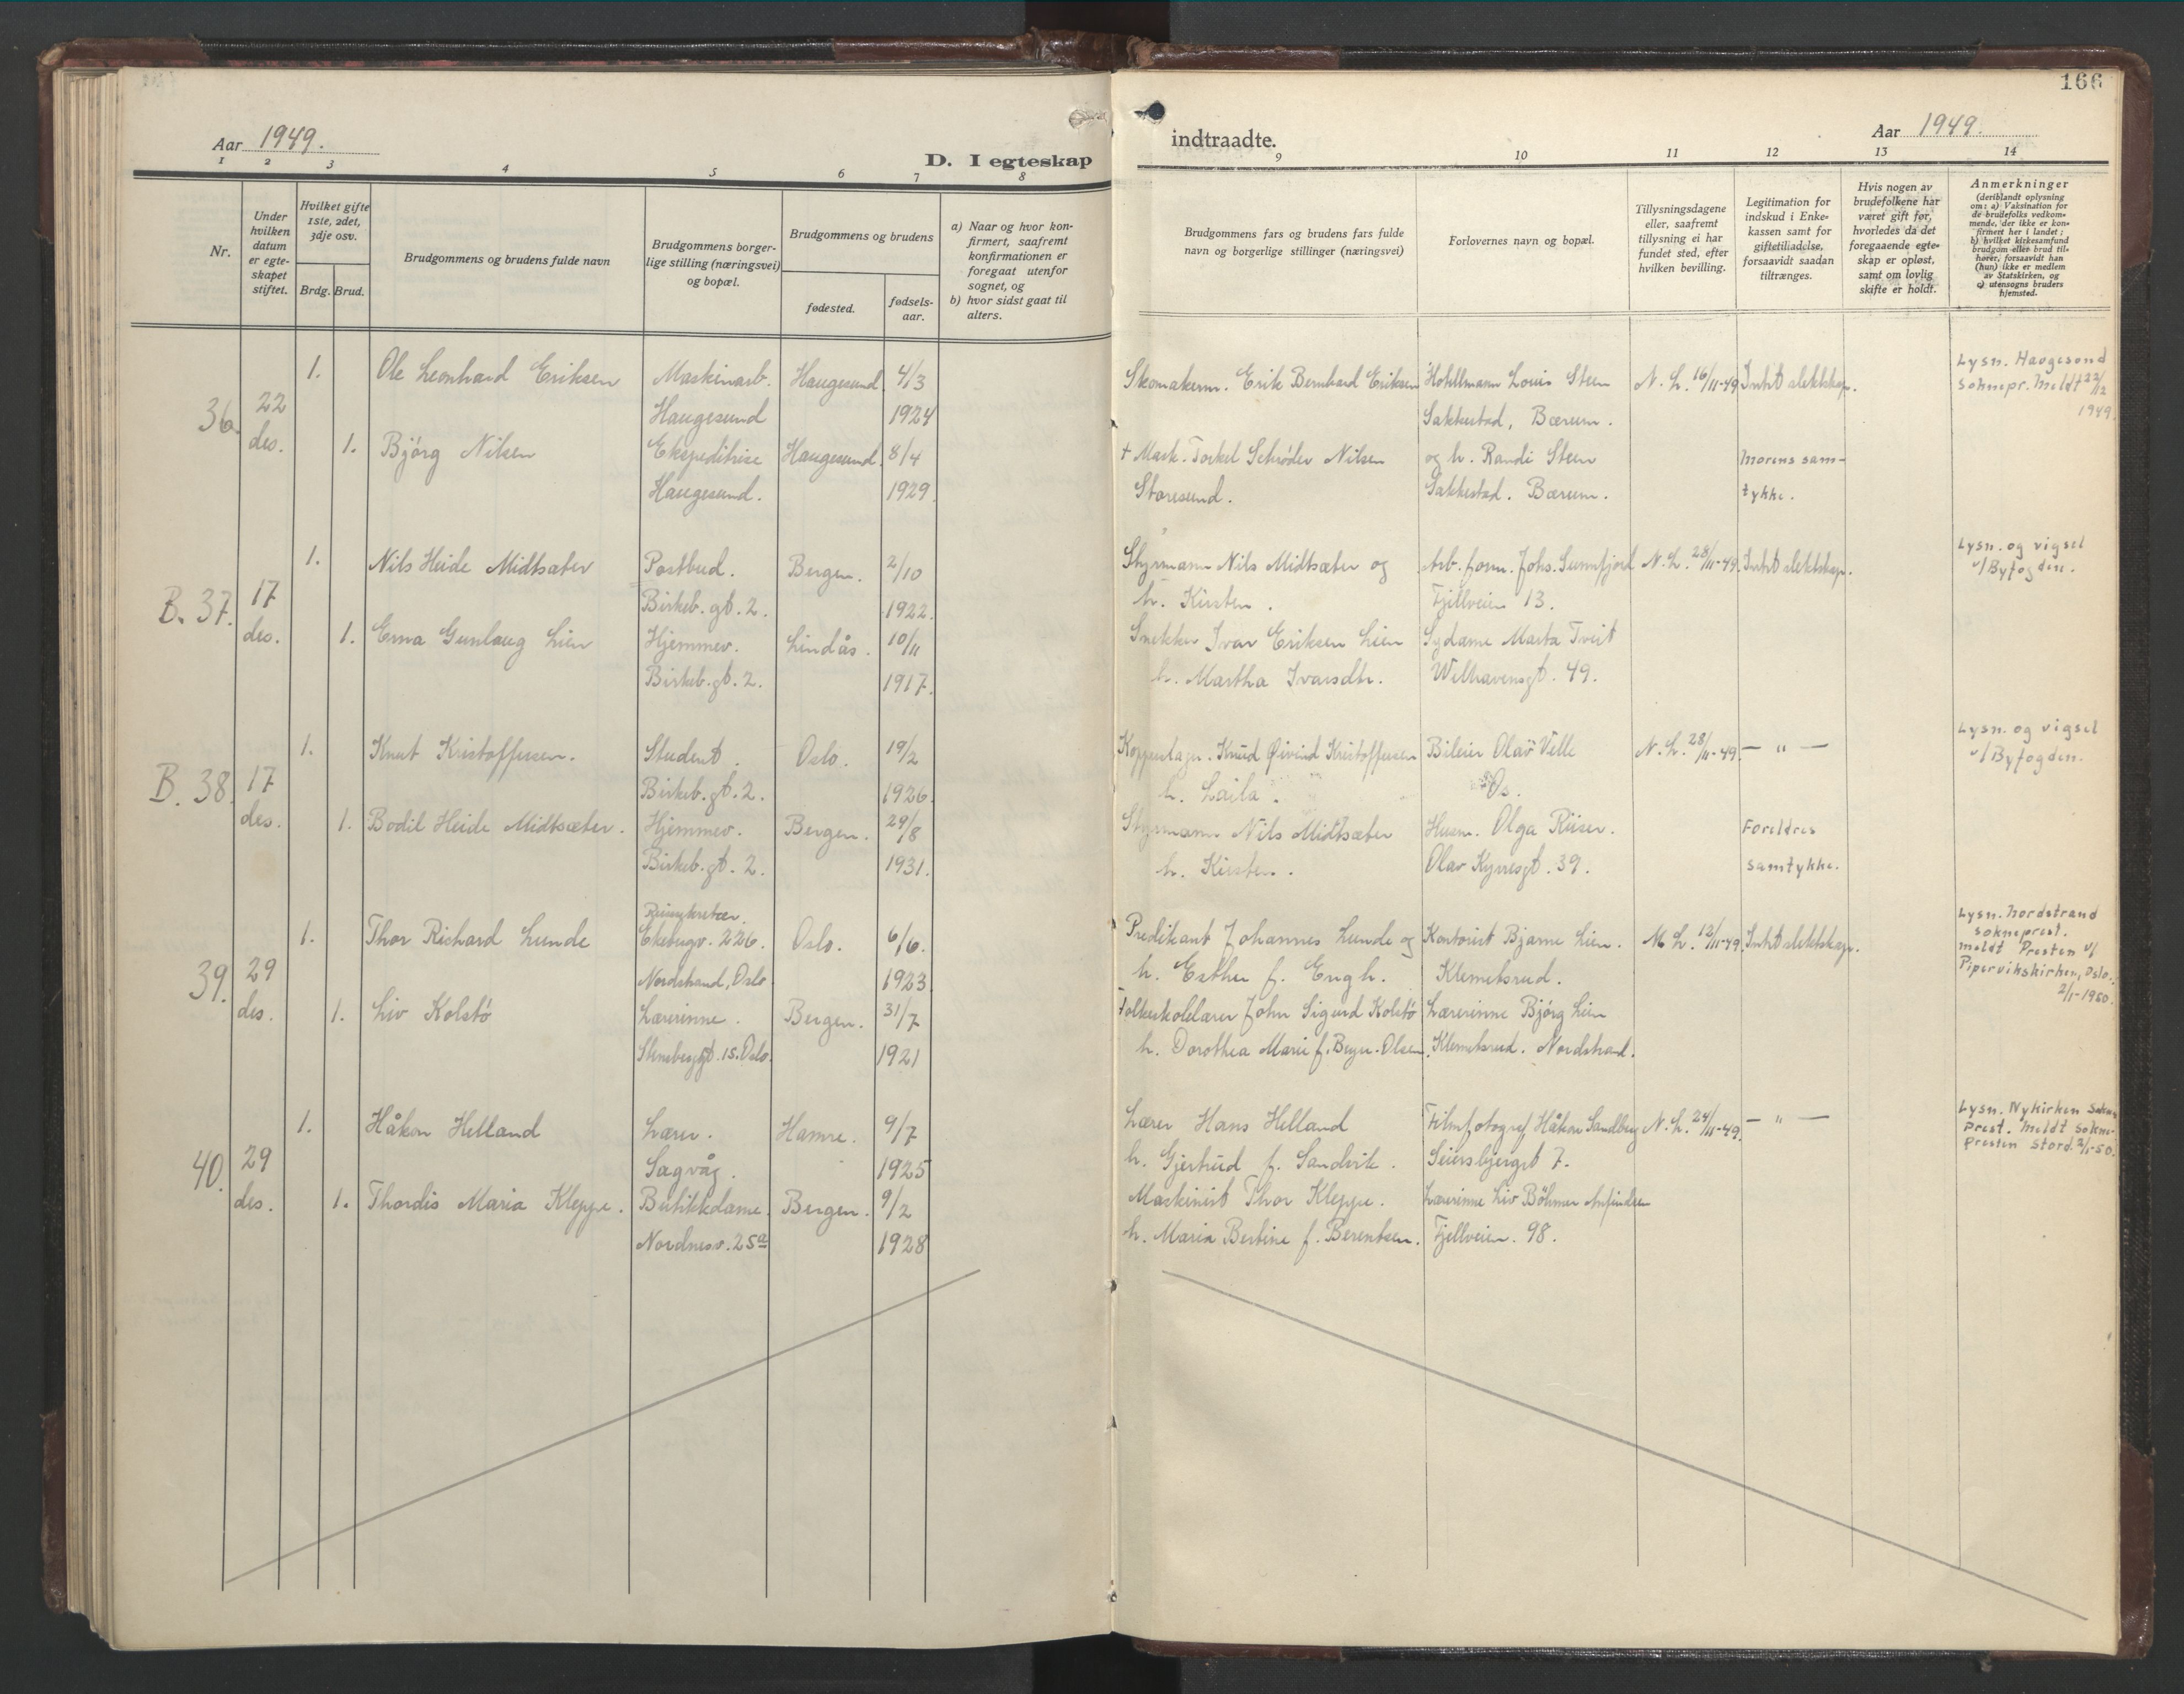 166
Aar 1949.
D. I egteskap
indtraadte.
Aar 1949.
1 2 3 4 5 6 7 8
9 10 11 12 13 14
Nr.
Under
hvilken
datum
er egte-
skapet
stiftet.
Hvilket gifte
1ste, 2det,
3dje osv.
Brdg. Brud.
Brudgommens og brudens fulde navn
Brudgommens borger-
lige stilling (næringsvei)
og bopæl.
Brudgommens og brudens
fødested.
fødsels-
aar.
a) Naar og hvor kon-
firmert, saafremt
konfirmationen er
foregaat utenfor
sognet, og
b) hvor sidst gaat til
alters.
Brudgommens fars og brudens fars fulde
navn og borgerlige stillinger (næringsvei)
Forlovernes navn og bopæl.
Tillysningsdagene
eller, saafremt
tillysning ei har
fundet sted, efter
hvilken bevilling.
Legitimation for
indskud i Enke-
kassen samt for
giftetiladelse,
forsaavidt saadan
tiltrænges.
Hvis nogen av
brudefolkene har
været gift før,
hvorledes da det
foregaaende egte-
skap er opløst,
samt om lovlig
skifte er holdt.
Anmerkninger
(deriblandt oplysning
om: a) Vaksination for
de brudefolks vedkom-
mende, der ikke er kon-
firmert her i landet;
b) hvilket kirkesamfund
brudgom eller brud til-
hører, forsaavidt han
(hun) ikke er medlem
av Statskirken, og
c) utensogns bruders
hjemsted.
36. 22 des.
1. Ole Leonhard Eriksen Maskinarb. Haugesund 4/3
Haugesund 1924
1. Bjørg Nilsen Ekspeditrise Haugesund. 8/4
Haugesund. 1929.
Skomakerm. Erik Bernhard Eriksen Louis Steen N. L. 16/11-49 Intet slektskap.
Sakkestad, Bærum.
+ Mask. Torkel Schrøder Nilsen og h. Randi Steen Morens sam-
Storesund. Sakkestad. Bærum. tykke.
Lysn. Haugesund
Soknepr. Meldt 22/12
1949.
B. 37. 17 des.
1. Nils Heide Midtsæter Postbud. Bergen. 2/10
Birkeb. gt. 2. 1922.
1. Erna Gunlaug Lien Hjemmev. Lindås. 10/11
Birkeb. gt. 2. 1917.
Styrmann Nils Midtsæter og Arb. form. Johs. Sunnfjord N. L. 28/11-49. Intet slektskap.
h. Kirsten. Fjellveien 13.
Snekker Ivar Eriksen Lien Sydame Marta Tveit
h. Martha Ivarsdtr. Welhavensgt. 49.
Lysn. og vigsel
v/Byfogden.
B. 38. 17 des.
1. Knut Kristoffersen. Student. Oslo. 19/2
Birkeb. gt. 2. 1926.
1. Bodil Heide Midtsæter. Hjemmev. Bergen. 29/8
Birkeb. gt. 2. 1931.
Knud Øivind Kristoffersen Bileier Olav Velle N. L. 28/11-49. — " —
h. Laila. Os.
Styrmann Nils Midtsæter Husm. Olga Riiser. Foreldres
h. Kirsten. Olav Kyrresgt. 39. samtykke.
Lysn. og vigsel
v/Byfogden.
39. 29 des.
1. Thor Richard Lunde Oslo. 6/6.
Ekebergv. 226.
Nordstrand, Oslo. 1923.
1. Liv Kolstø Lærerinne. Bergen. 31/7
Stensberggt. 15. Oslo. 1921
Predikant Johannes Lunde og Kontorist Bjarne Lien. M. L. 12/11-49. Intet slektskap.
h. Esther f. Engh. Klemetsrud.
Folkeskolelærer John Sigurd Kolstø Lærerinne Bjørg Lien
h. Dorothea Marie f. Olsen. Klemetsrud. Nordstrand.
Lysn. Nordstrand
sokneprest.
meldt Presten v/
Pipervikskirken, Oslo.
2/1-1950.
40. 29 des.
1. Håkon Helland Lærer. Hamre. 9/7
Sagvåg. 1925
1. Thordis Maria Kleppe. Butikkdame. Bergen. 9/2
Nordnesv. 25a 1928
Lærer Hans Helland Filmfotograf Håkon Sandberg N. L. 24/11-49. — " —
h. Gjertrud f. Sandvik. Seiersbjergt 7.
Maskinist Thor Kleppe. Lærerinne Liv Böhmer
h. Maria Bertine f. Berentsen. Fjellveien. 98.
Lysn. Nykirken Sokne-
prest. Meldt sokne-
presten Stord. 2/1-50.